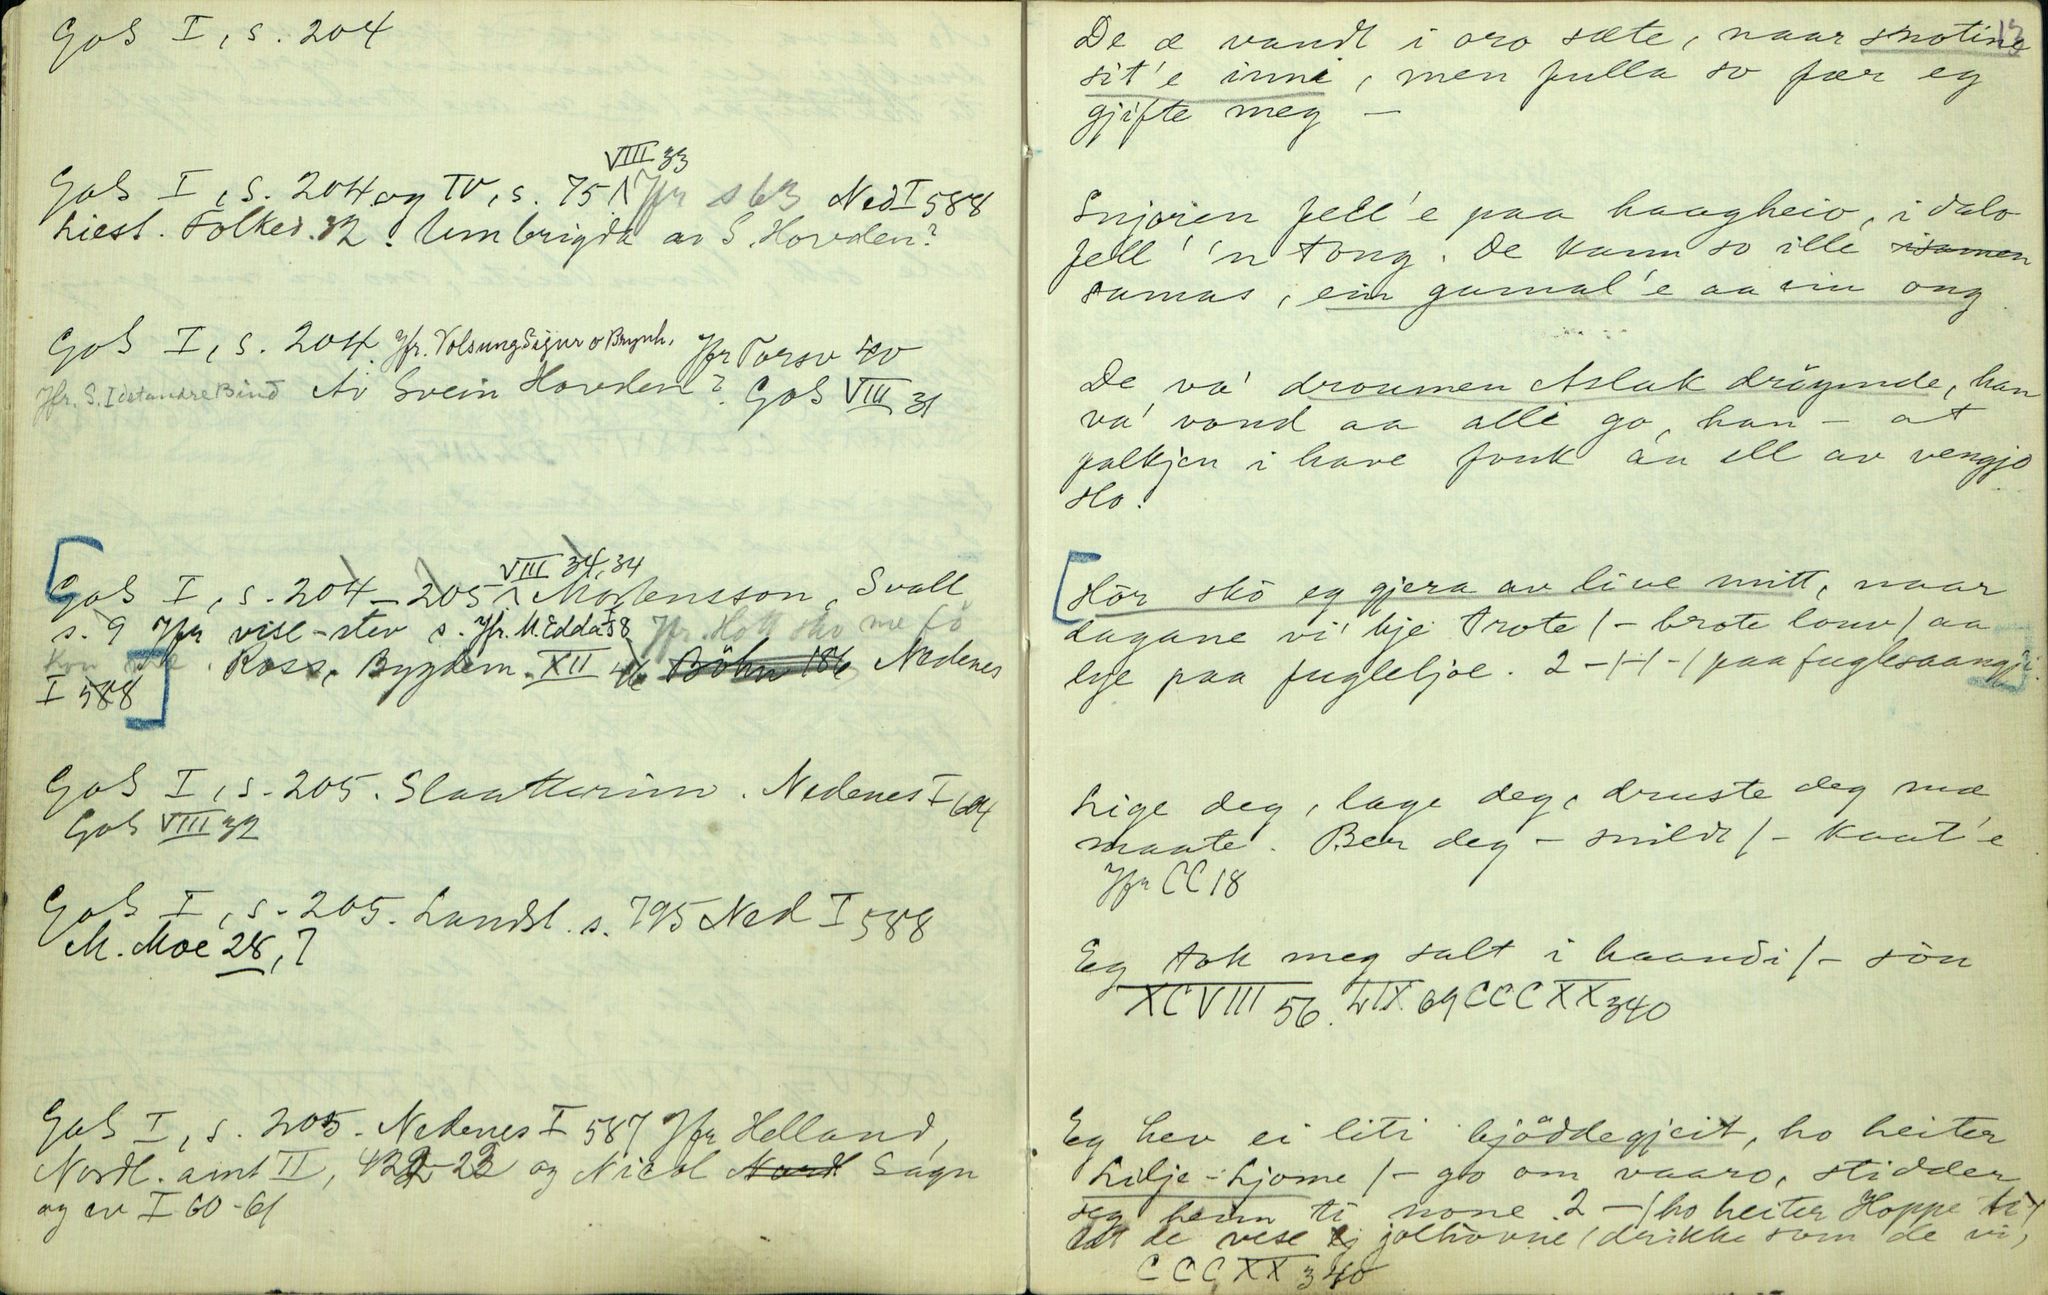 GoS I, s. 204
VIII 33
GoS I, s. 204 og IV, s. 75 Jfr s 63 Ned I 588
Liest. Folked. 32. Umbrigda av S. Hovden?
GoS I, s. 204. Jfr. Volsung Sigur o Brynh. Jfr Torsv 40
Jfr. S. I Av Svein Hovden? GoS VIII 31
VIII 34, 34
GoS I, s. 204-205 Mortensson, Svall
s. 9 Jfr vise-stev s. Jfr. M. Edda 58 Jfr. me få
Ross, Bygdem. XII 46 Böhn 186 Nedenes
I 588
GoS I, s. 205. Slaatterim. Nedenes I 604
GoS VIII 32
GoS I, s. 205. Landst. s. 795 Ned I 588
M. Moe 28, 7
GoS I, s. 205. Nedenes I 587 Jfr Helland,
Nordl. amt II, 422-23 og Nicol Nord Sagn
og ev I 60-61
13
De æ vandt i oro sæte, naar snotine
sit'e inni, men fulla so fær eg
gjifte meg -
Snjoren fell'e paa haagheio, i dalo
fell' 'n tong. De kann so ille isamen
samas, ein gamal'e aa ein ong
De va' droumen Aslak dröymde, han
va' vond aa alli go, han - at
falkjen i have fouk aa ell av vengjo
slo.
Hör skö eg gjera av live mitt, naar
dagane vi' kje trote /- brote louv / aa
lye paa fugleljoe. 2 -/-/-/ paa fuglesaangji
Lige deg, lage deg, druste deg mæ
maate. Ber deg - snildt /- kaat'e
Jfr CC 18
Eg tok meg salt i haandi /- sön
XCVIII 56. LIX 69 CCCXX 340
Eg hev ei liti bjöddegjeit, ho heiter
Lilje-Ljome /- go om vaaro, stidder
seg heim ti none 2 -/ ho heiter Hoppe
de vese jolhovne / drikke som de vi,
CCCXX 340